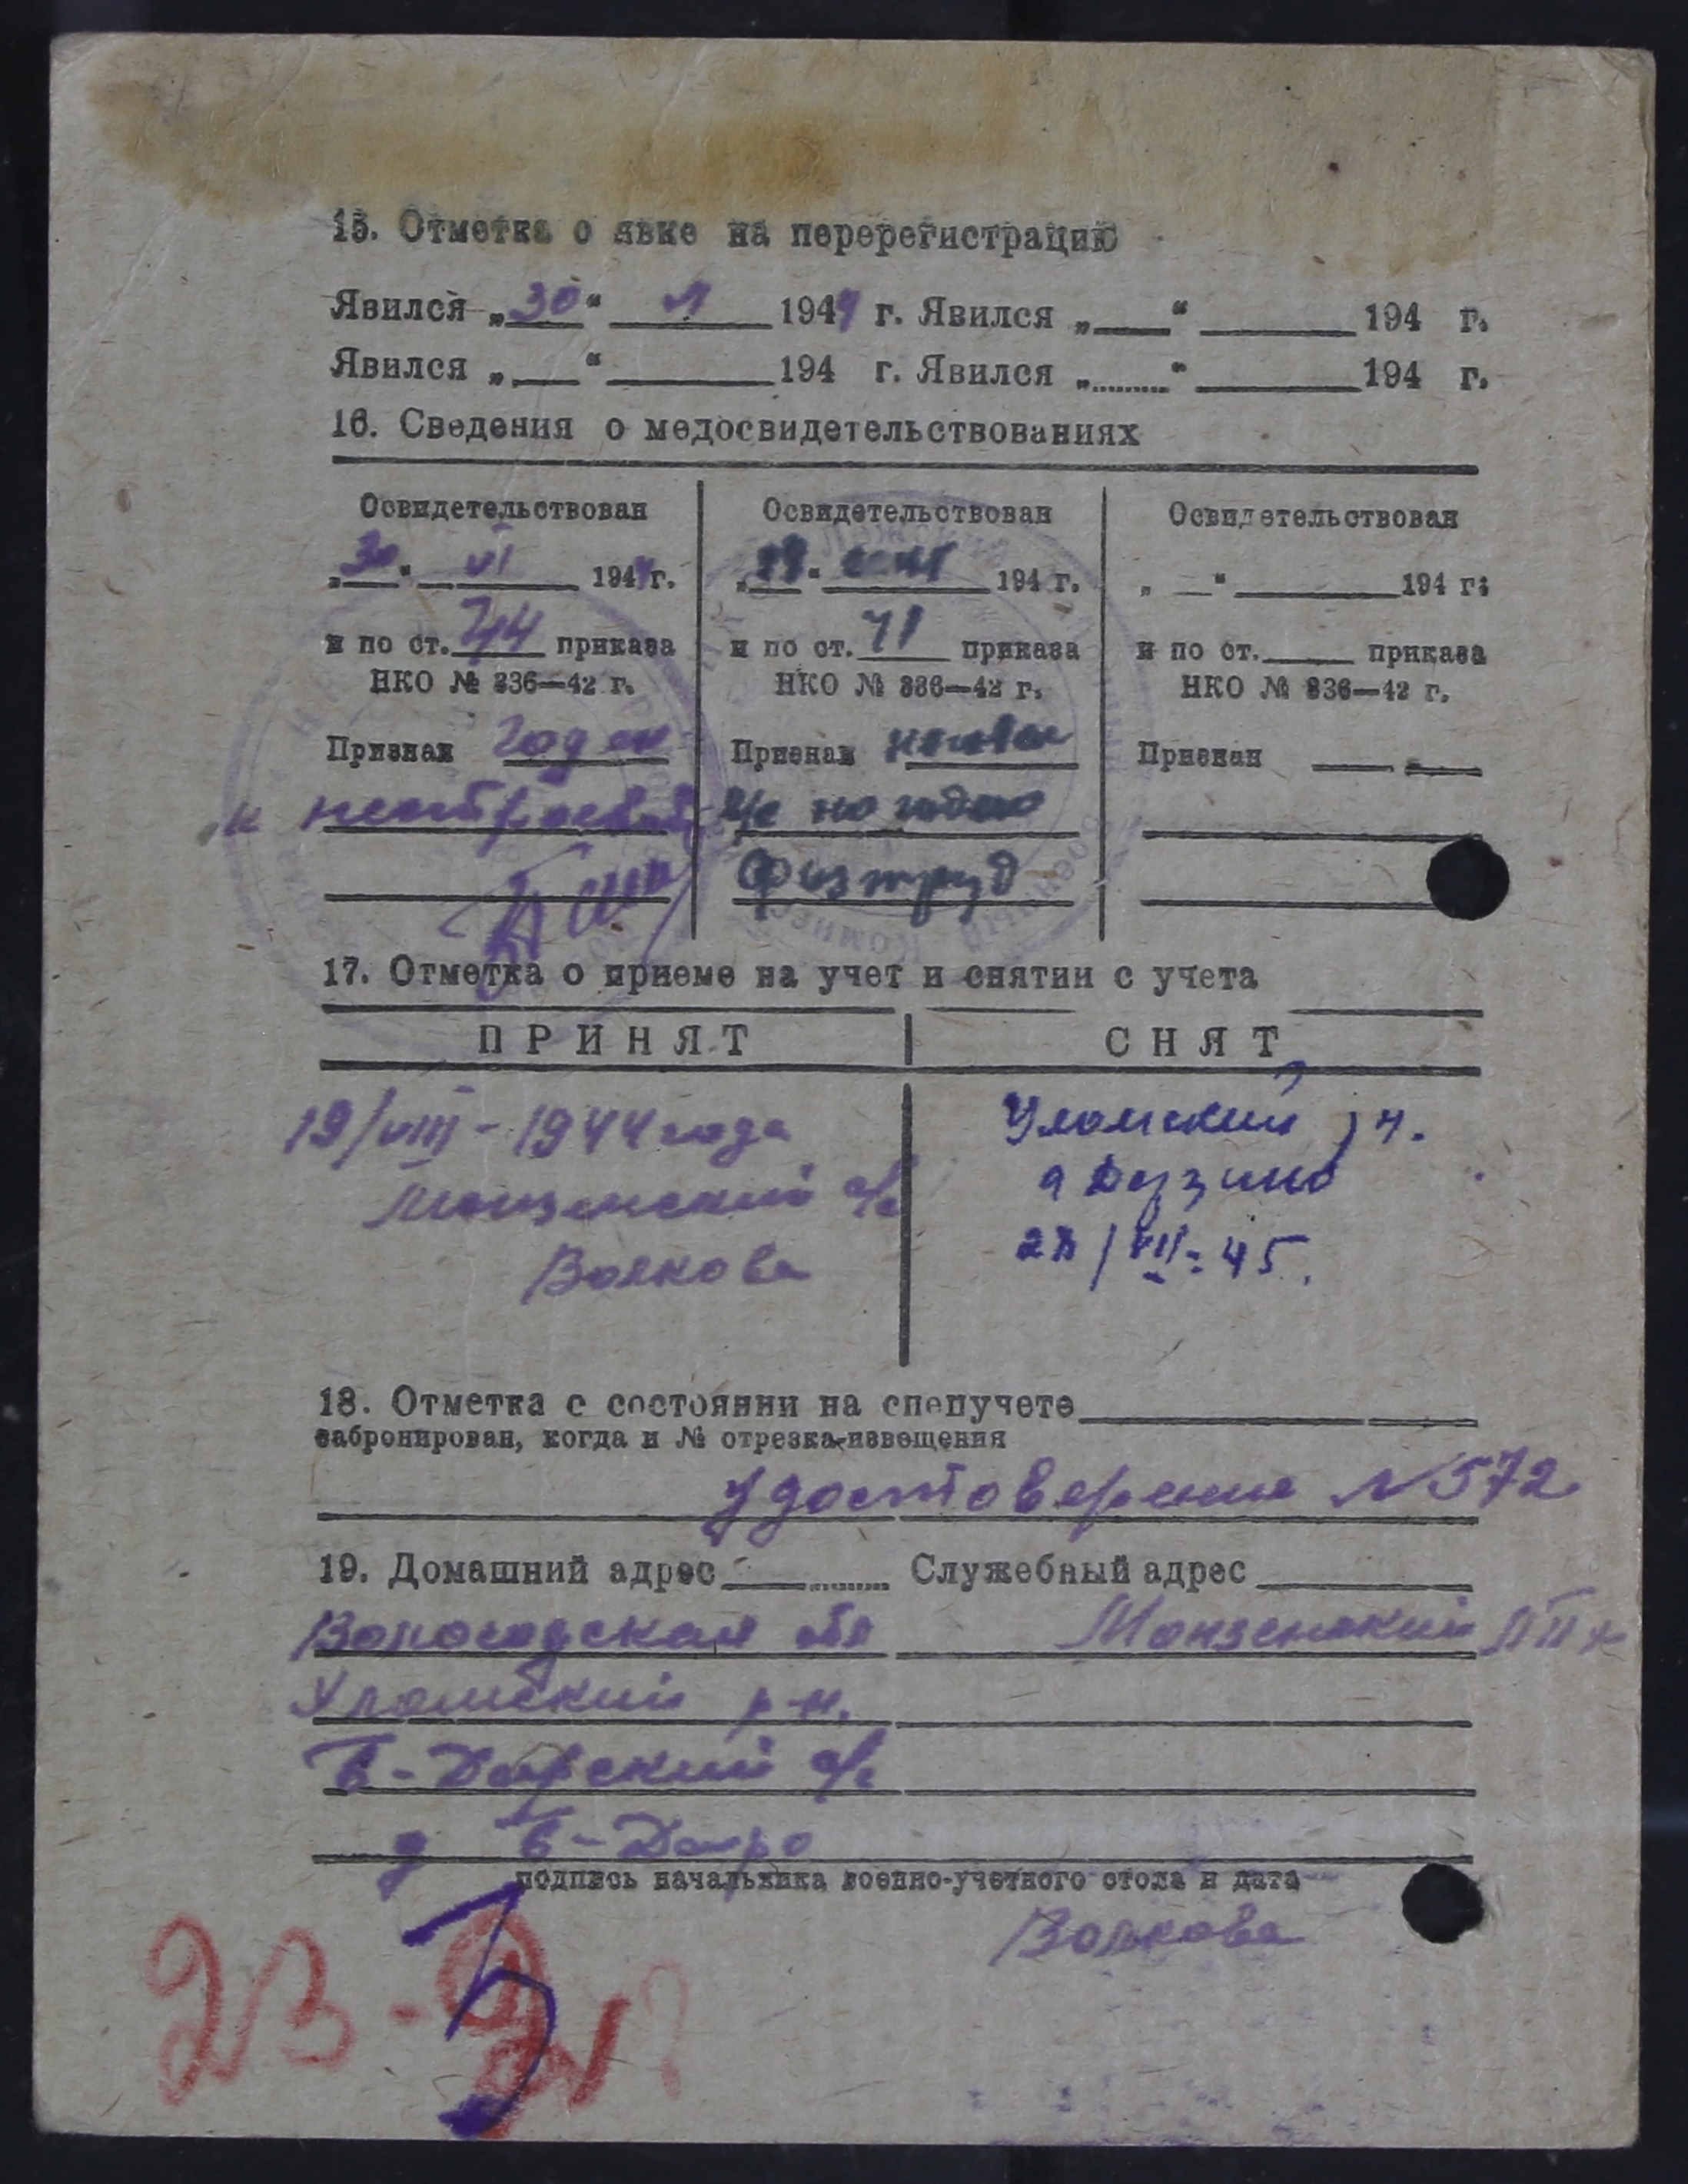 15. Отметка о явке на перерегистрацию
Явился „30“ VI 1944 г. Явился „ “ 194 г.
Явился „ “ 194 г. Явился „ “ 194 г.
16. Сведения о медосвидетельствованиях
Освидетельствован
„30“ VI 1944 г.
и по ст. 44 приказа
НКО № 336—42 г.
Признан годен
к нестроевой
Освидетельствован
194 г.
и по ст. 71 приказа
НКО № 336—42 г.
Признан
физтруд
Освидетельствован
„ “ 194 г.
и по ст. приказа
НКО № 336—42 г.
Признан
17. Отметка о приеме на учет и снятии с учета
ПРИНЯТ
19/VIII - 1944 года
Монзенский с/с
Волкова
СНЯТ
Уломский
28/VII - 45.
18. Отметка о состоянии на спецучете
забронирован, когда и № отрезка-извещения
Удостоверение № 572
19. Домашний адрес
Вологодская обл
Уломский р-н.
Б-Дворский с/с
д Б-Двор
Служебный адрес
Монзенский ЛПХ
подпись начальника военно-учетного стола и дата
Волкова